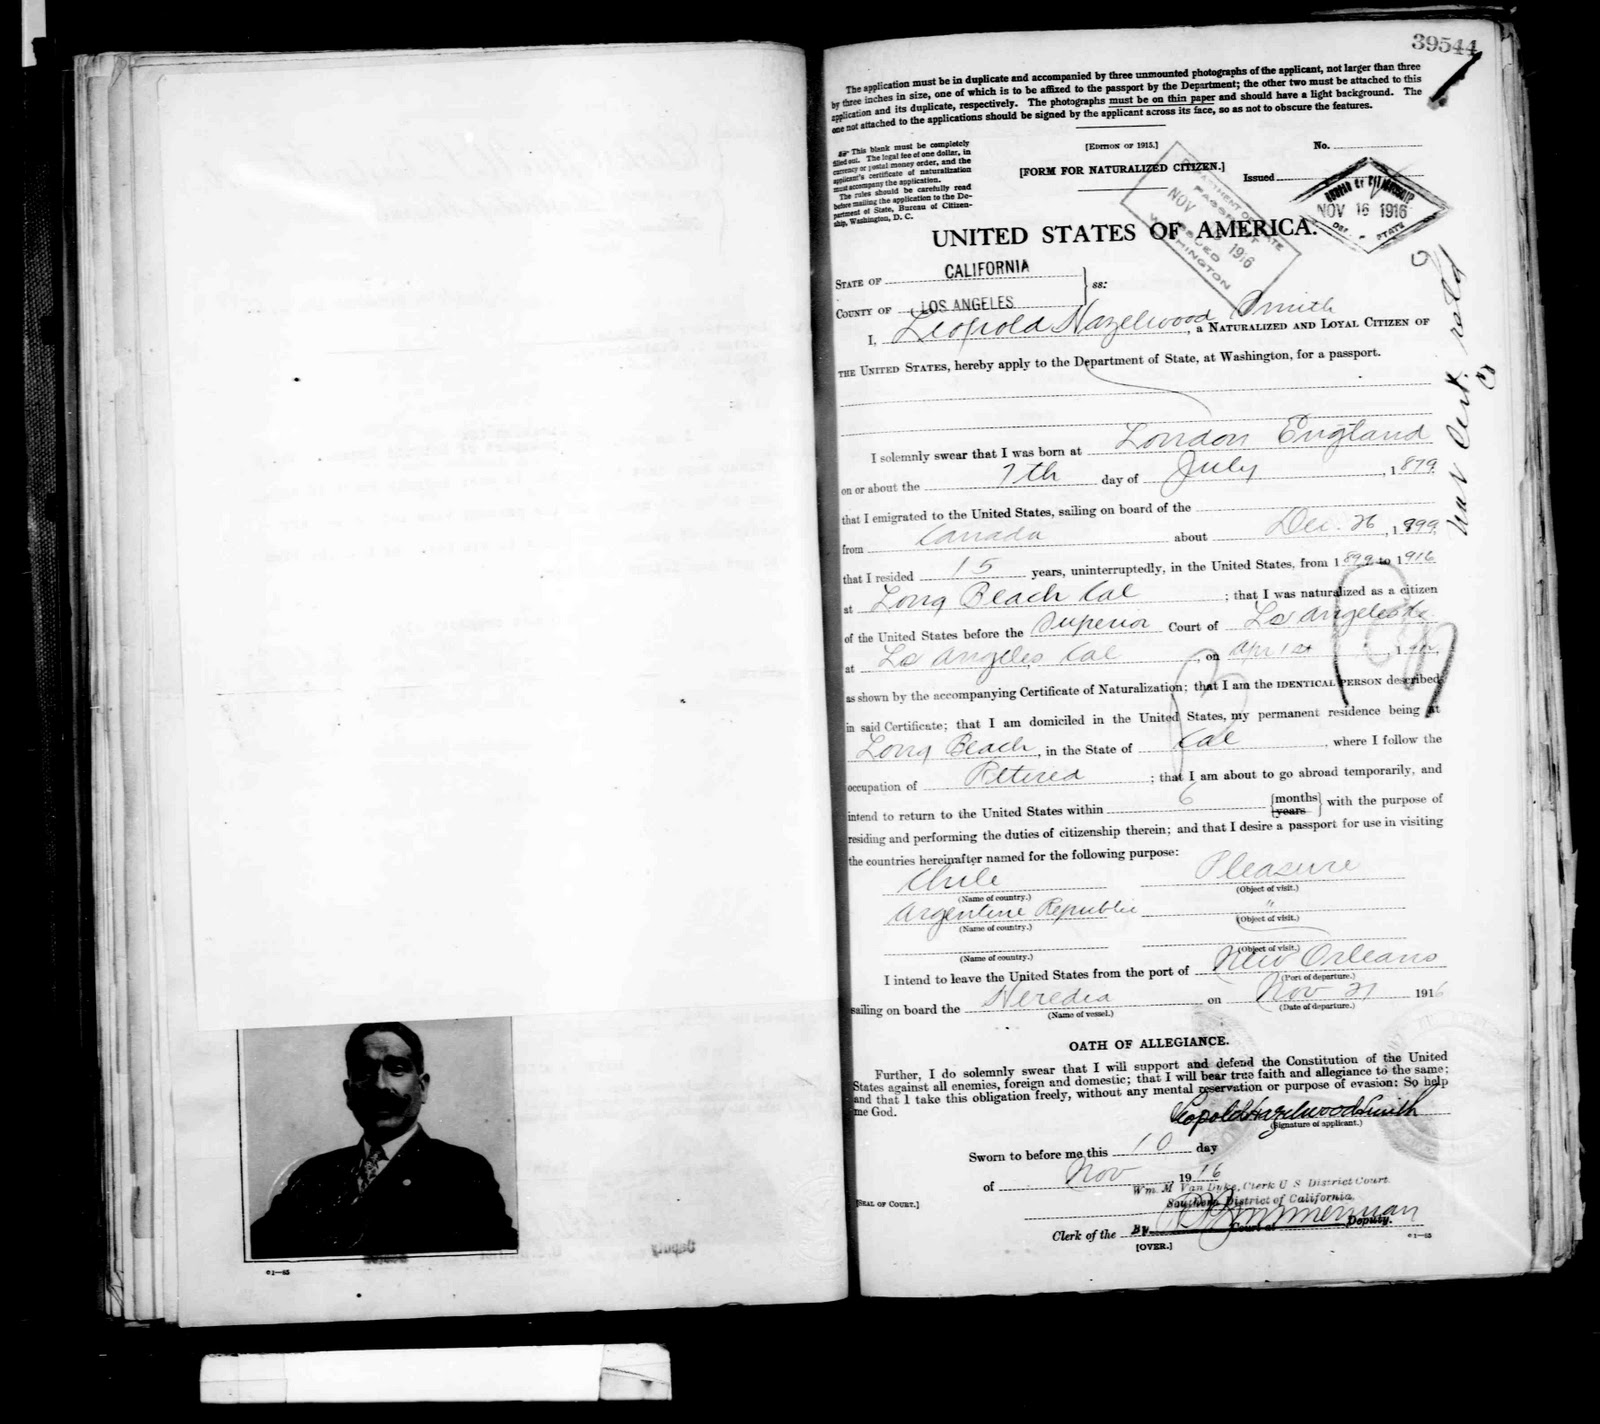 39544
The application must be in duplicate and accompanied by three unmounted photographs of the applicant, not larger than three
by three inches in size, one of which is to be affixed to the passport by the Department; the other two must be attached to this
application and its duplicate, respectively. The photographs must be on thin paper and should have a light background. The
one not attached to the applications should be signed by the applicant across its face, so as not to obscure the features.
This blank must be completely
filled out. The legal fee of one dollar, in
currency or postal money order, and the
applicant's certificate of naturalization
must accompany the application.
The rules should be carefully read
before mailing the application to the De-
partment of State, Bureau of Citizen-
ship, Washington, D. C.
[EDITION OF 1915.]
[FORM FOR NATURALIZED CITIZEN.]
No.
Issued
NOV 16 1916
STATE
DEPARTMENT OF STATE
PASSPORT
NOV 1916
ISSUED
WASHINGTON
UNITED STATES OF AMERICA.
STATE OF CALIFORNIA
COUNTY OF LOS ANGELES
ss:
I, Leopold Hazelwood Smith, a NATURALIZED AND LOYAL CITIZEN OF
THE UNITED STATES, hereby apply to the Department of State, at Washington, for a passport.
I solemnly swear that I was born at London England
on or about the 7th day of July, 1879
that I emigrated to the United States, sailing on board of the
from Canada about Dec. 26, 1899
that I resided 15 years, uninterruptedly, in the United States, from 1899 to 1916
at Long Beach Cal; that I was naturalized as a citizen
of the United States before the Superior Court of Los Angeles
at Los Angeles Cal, on Apr 1st
as shown by the accompanying Certificate of Naturalization; that I am the IDENTICAL PERSON described
in said Certificate; that I am domiciled in the United States, my permanent residence being at
Long Beach, in the State of Cal, where I follow the
occupation of Retired; that I am about to go abroad temporarily, and
intend to return to the United States within 6 {months years} with the purpose of
residing and performing the duties of citizenship therein; and that I desire a passport for use in visiting
the countries hereinafter named for the following purpose:
Chile Pleasure
(Name of country.) (Object of visit.)
Argentine Republic "
(Name of country.) (Object of visit.)
(Name of country.) (Object of visit.)
I intend to leave the United States from the port of New Orleans
(Port of departure.)
sailing on board the Heredia on Nov 21 1916
(Name of vessel.) (Date of departure.)
OATH OF ALLEGIANCE.
Further, I do solemnly swear that I will support and defend the Constitution of the United
States against all enemies, foreign and domestic; that I will bear true faith and allegiance to the same;
and that I take this obligation freely, without any mental reservation or purpose of evasion: So help
me God.
Leopold Hazelwood Smith
(Signature of applicant.)
Sworn to before me this 10 day
of Nov, 1916
Wm. M Van Dyke, Clerk U S District Court
Southern District of California
[SEAL OF COURT.]
Clerk of the By Zimmerman Court at Deputy.
[OVER.]
C1—65
C1—65
Nat Cert. retd